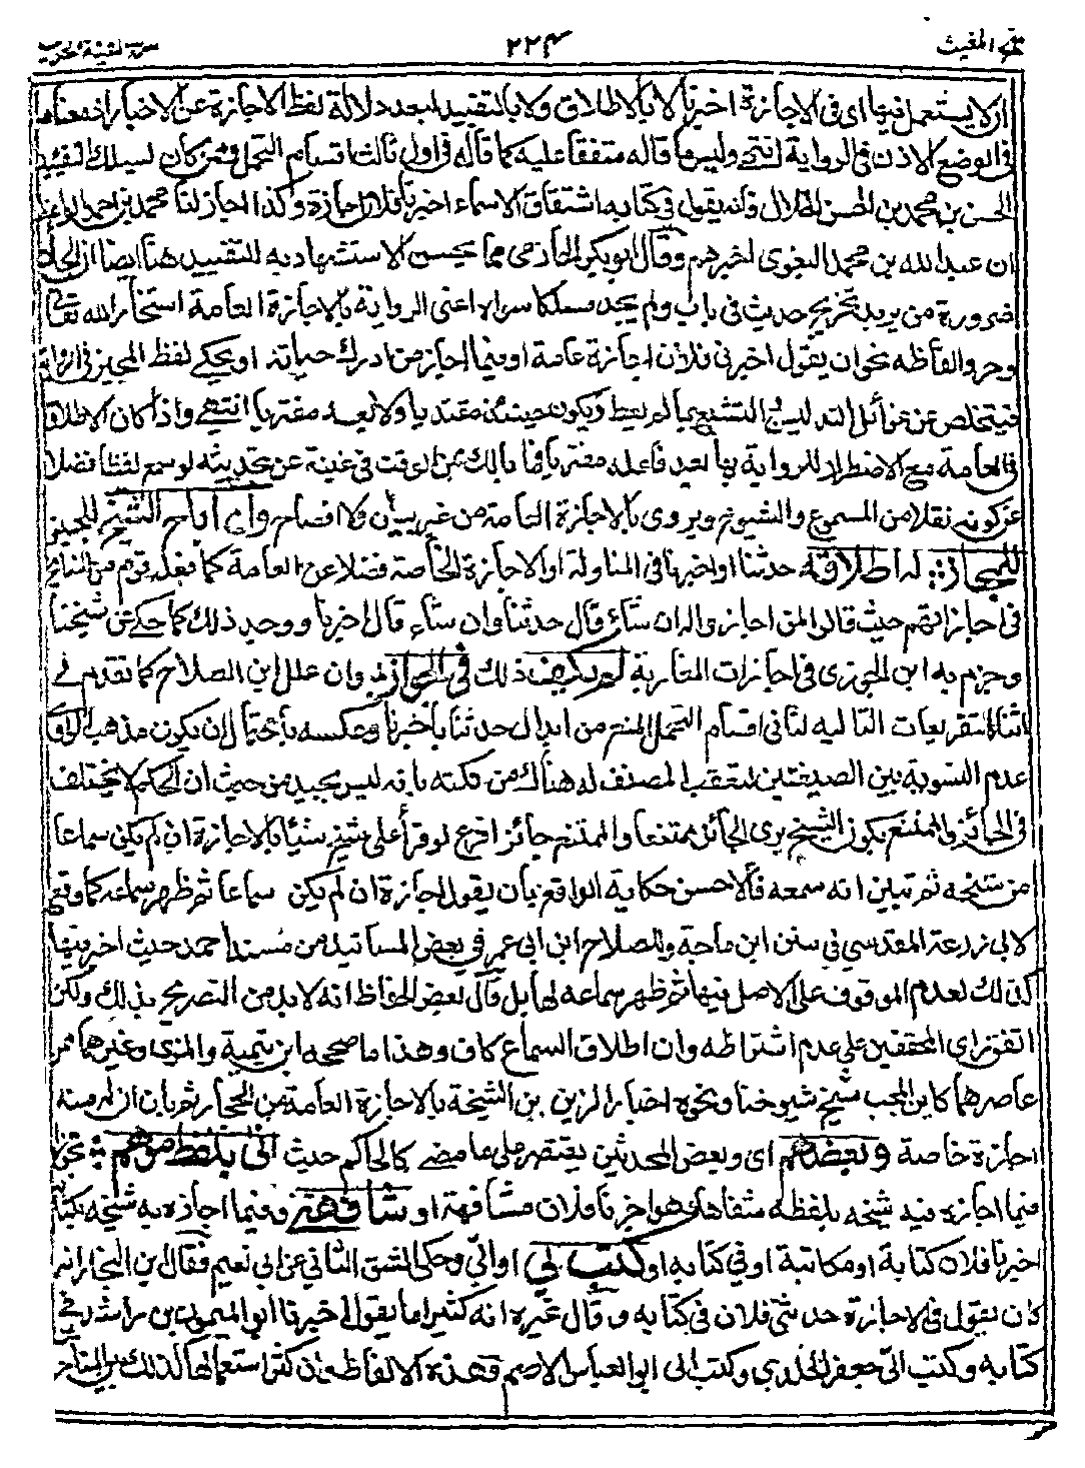 فتح المغيث ٢٢٤ شرح الفية الحديث
ان لا يستعمل فيها اى فى الاجازة اخبرنا لا بالاطلاق ولا بالتقييد لبعد دلالة لفظ الاجازة عن الاخبار اذ معناها
فى الوضع الاذن فى الرواية انتهى وليس ما قاله متفقا عليه كما قاله فى اول ثالث اقسام التحمل فممن كان يسلك التقييد
الحسن بن محمد بن الحسن الخلال فانه يقول فى كتابه اشتقاق الاسماء اخبرنا فلان اجازة وكذا اجاز لنا محمد بن احمد الواعظ
ان عبد الله بن محمد البغوى اخبرهم وقال ابو بكر الحازمى مما يحسن الاستشهاد به للتقييد هنا ايضا ان الجأت
ضرورة من يريد تخريج حديث فى باب ولم يجد مسلكا سواه اعنى الرواية بالاجازة العامة استخار الله تعالى
وحرر الفاظه نحو ان يقول اخبرنى فلان اجازة عامة او فيما اجاز من ادرك حياته او يحكى لفظ المجيز فى الرواية
فيتخلص عن غوائل التدليس والتشبع بما لم يعط ويكون حينئذ مقتديا ولا يعد مفتريا انتهى واذا كان الاطلاق
فى العامة مع الاضطرار للرواية بها يعد فاعله مفتريا فما بالك بمن الوقت فى غنية عن تحديثه لو سمع لفظا فضلا
عن كونه نقلا من المسموع والشيوخ ويروى بالاجازة العامة من غير بيان ولا افصاح وان اباح الشيخ المجيز
للمجاز له اطلاقه حدثنا او اخبرنا فى المناولة او الاجازة الخاصة فضلا عن العامة كما فعله قوم من المشايخ
فى اجازاتهم حيث قالوا لمن اجازوا له ان شاء قال حدثنا وان شاء قال اخبرنا ووجد ذلك كما حكى عن شيخنا
وجزم به ابن الجزرى فى اجازات المغاربة لم يكف ذلك فى الجواز وان علل ابن الصلاح كما تقدم فى
اثناء التفريعات التالية لثانى اقسام التحمل المنع من ابدال حدثنا باخبرنا وعكسه باحتمال ان يكون مذهب الراوى
عدم التسوية بين الصيغتين لتعقب المصنف له هناك من نكته بانه ليس بجيد من حيث ان الحكم لا يختلف
فى الجائز والممتنع بكون الشيخ يرى الجائز ممتنعا والممتنع جائزا فرع لو قرأ على شيخ شيئا بالاجازة ان لم يكن سماعا
من شيخه ثم تبين انه سمعه فالاحسن حكاية الواقع بان يقول اجازة ان لم يكن سماعا ثم ظهر سماعه كما وقع
لابى زرعة المقدسى فى سنن ابن ماجة وللصلاح ابن ابى عمر فى بعض المسانيد من مسند احمد حيث اخبر بها
كذلك لعدم الوقوف على الاصل فيها ثم ظهر سماعه لها بل قال بعض الحفاظ انه لابد من التصريح بذلك ولكن
اتفق رأى المحققين على عدم اشتراطه وان اطلاق السماع كاف وهذا ما صححه ابن تيمية والمزى وغيرهما ممن
عاصرهما كابن المحب شيخ شيوخنا ونحوه اخبار الزين بن الشيخة بالاجازة العامة من الحجار ثم بان ان له منه
اجازة خاصة وبعضهم اى وبعض المحدثين يقتصر على ما مضى كالحاكم حيث اتى بلفظ موهم تجوزا
فيما اجازه فيه شيخه بلفظه شفاها هو اخبرنا فلان مشافهة او شافهنى وفيما اجازه به شيخه كتابة
اخبرنا فلان كتابة او مكاتبة او فى كتابه او كتب لى او الى وحكى الشق الثانى عن ابى نعيم فقال ابن النجار انه
كان يقول فى الاجازة حدثنى فلان فى كتابه وقال غيره انه كثيرا ما يقول اخبرنا ابو الميمون بن راشد فى
كتابه وكتب الى جعفر الخلدى وكتب الى ابو العباس الاصم فهذه الالفاظ وان كثر استعمالها كذلك بين المتاخرين